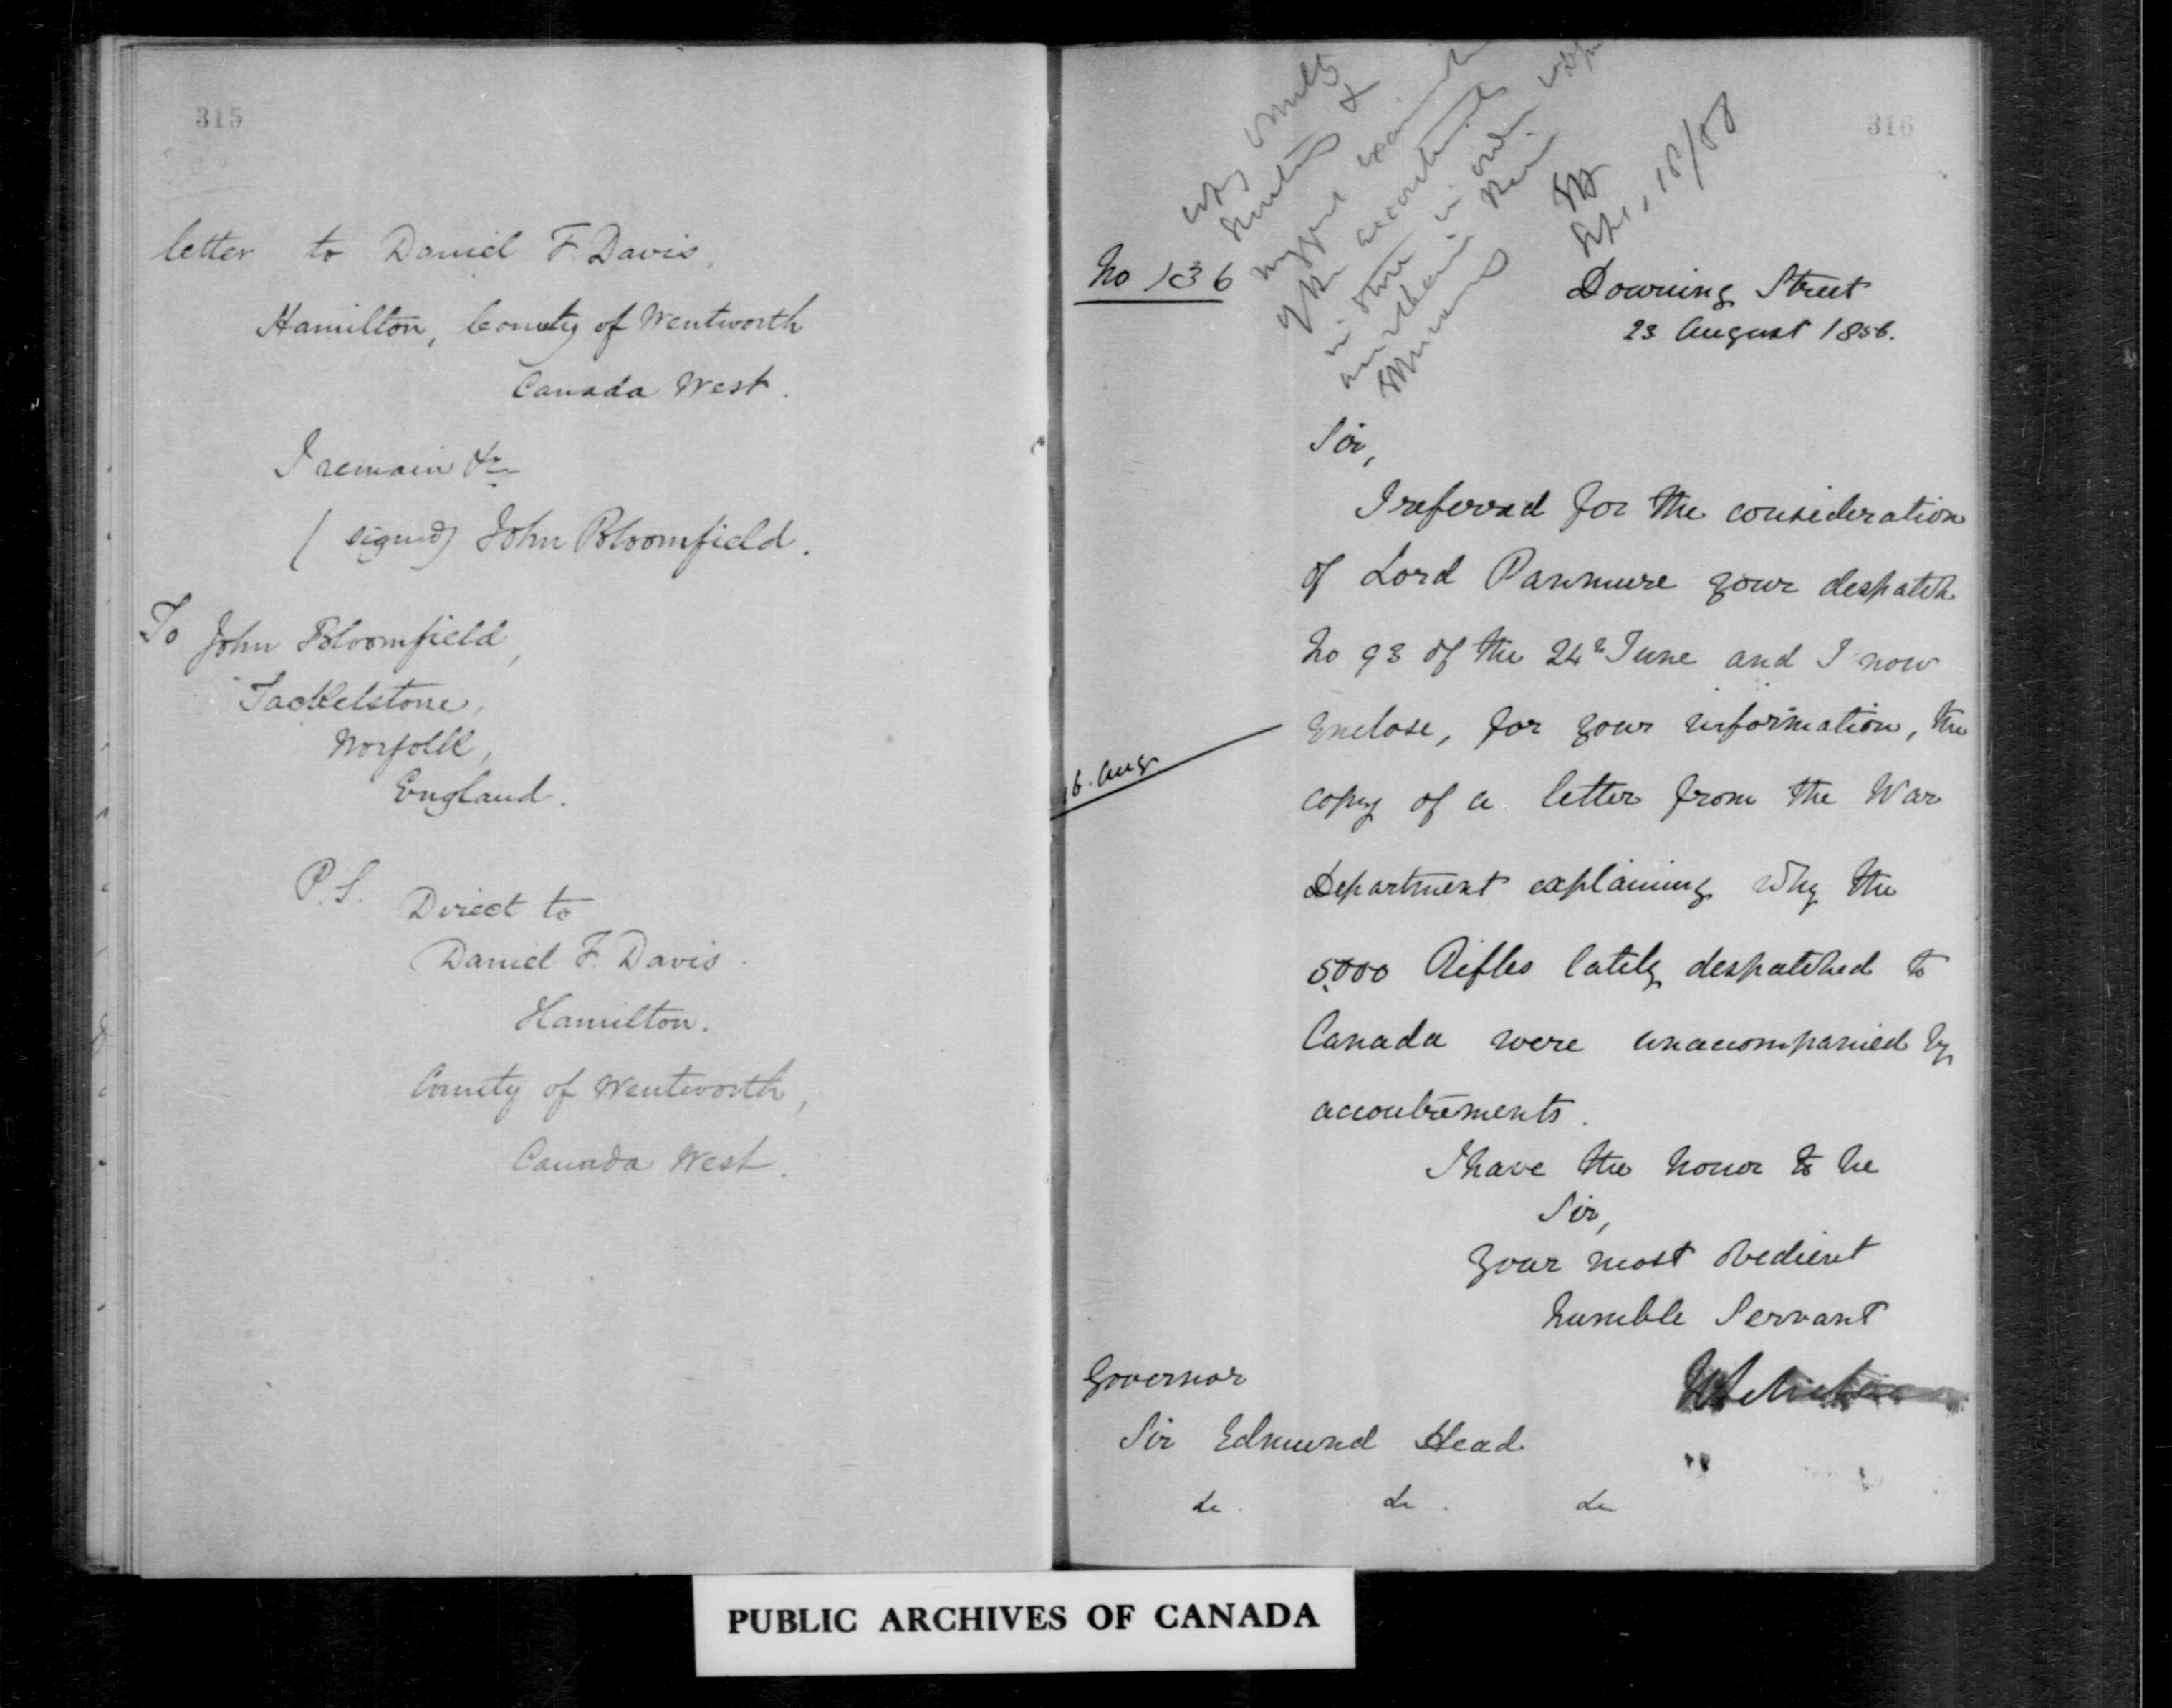 315
letter to Daniel F. Davis,
Hamilton, County of Wentworth
Canada West.
I remain &c
(signed) John Bloomfield.
To John Bloomfield,
Tackelstone,
Norfolk,
England.
P.S. Direct to
Daniel F. Davis.
Hamilton.
County of Wentworth,
Canada West.
316
No 136
Downing Street
23 August 1856.
Sir,
I referred for the consideration
of Lord Panmure your despatch
No 93 of the 24th June and I now
enclose, for your information, the
16. Aug.
copy of a letter from the War
Department explaining why the
5,000 Rifles lately despatched to
Canada were unaccompanied by
accoutrements.
I have the honor to be
Sir,
your most obedient
humble Servant
Governor
Sir Edmund Head
&c. &c. &c
PUBLIC ARCHIVES OF CANADA